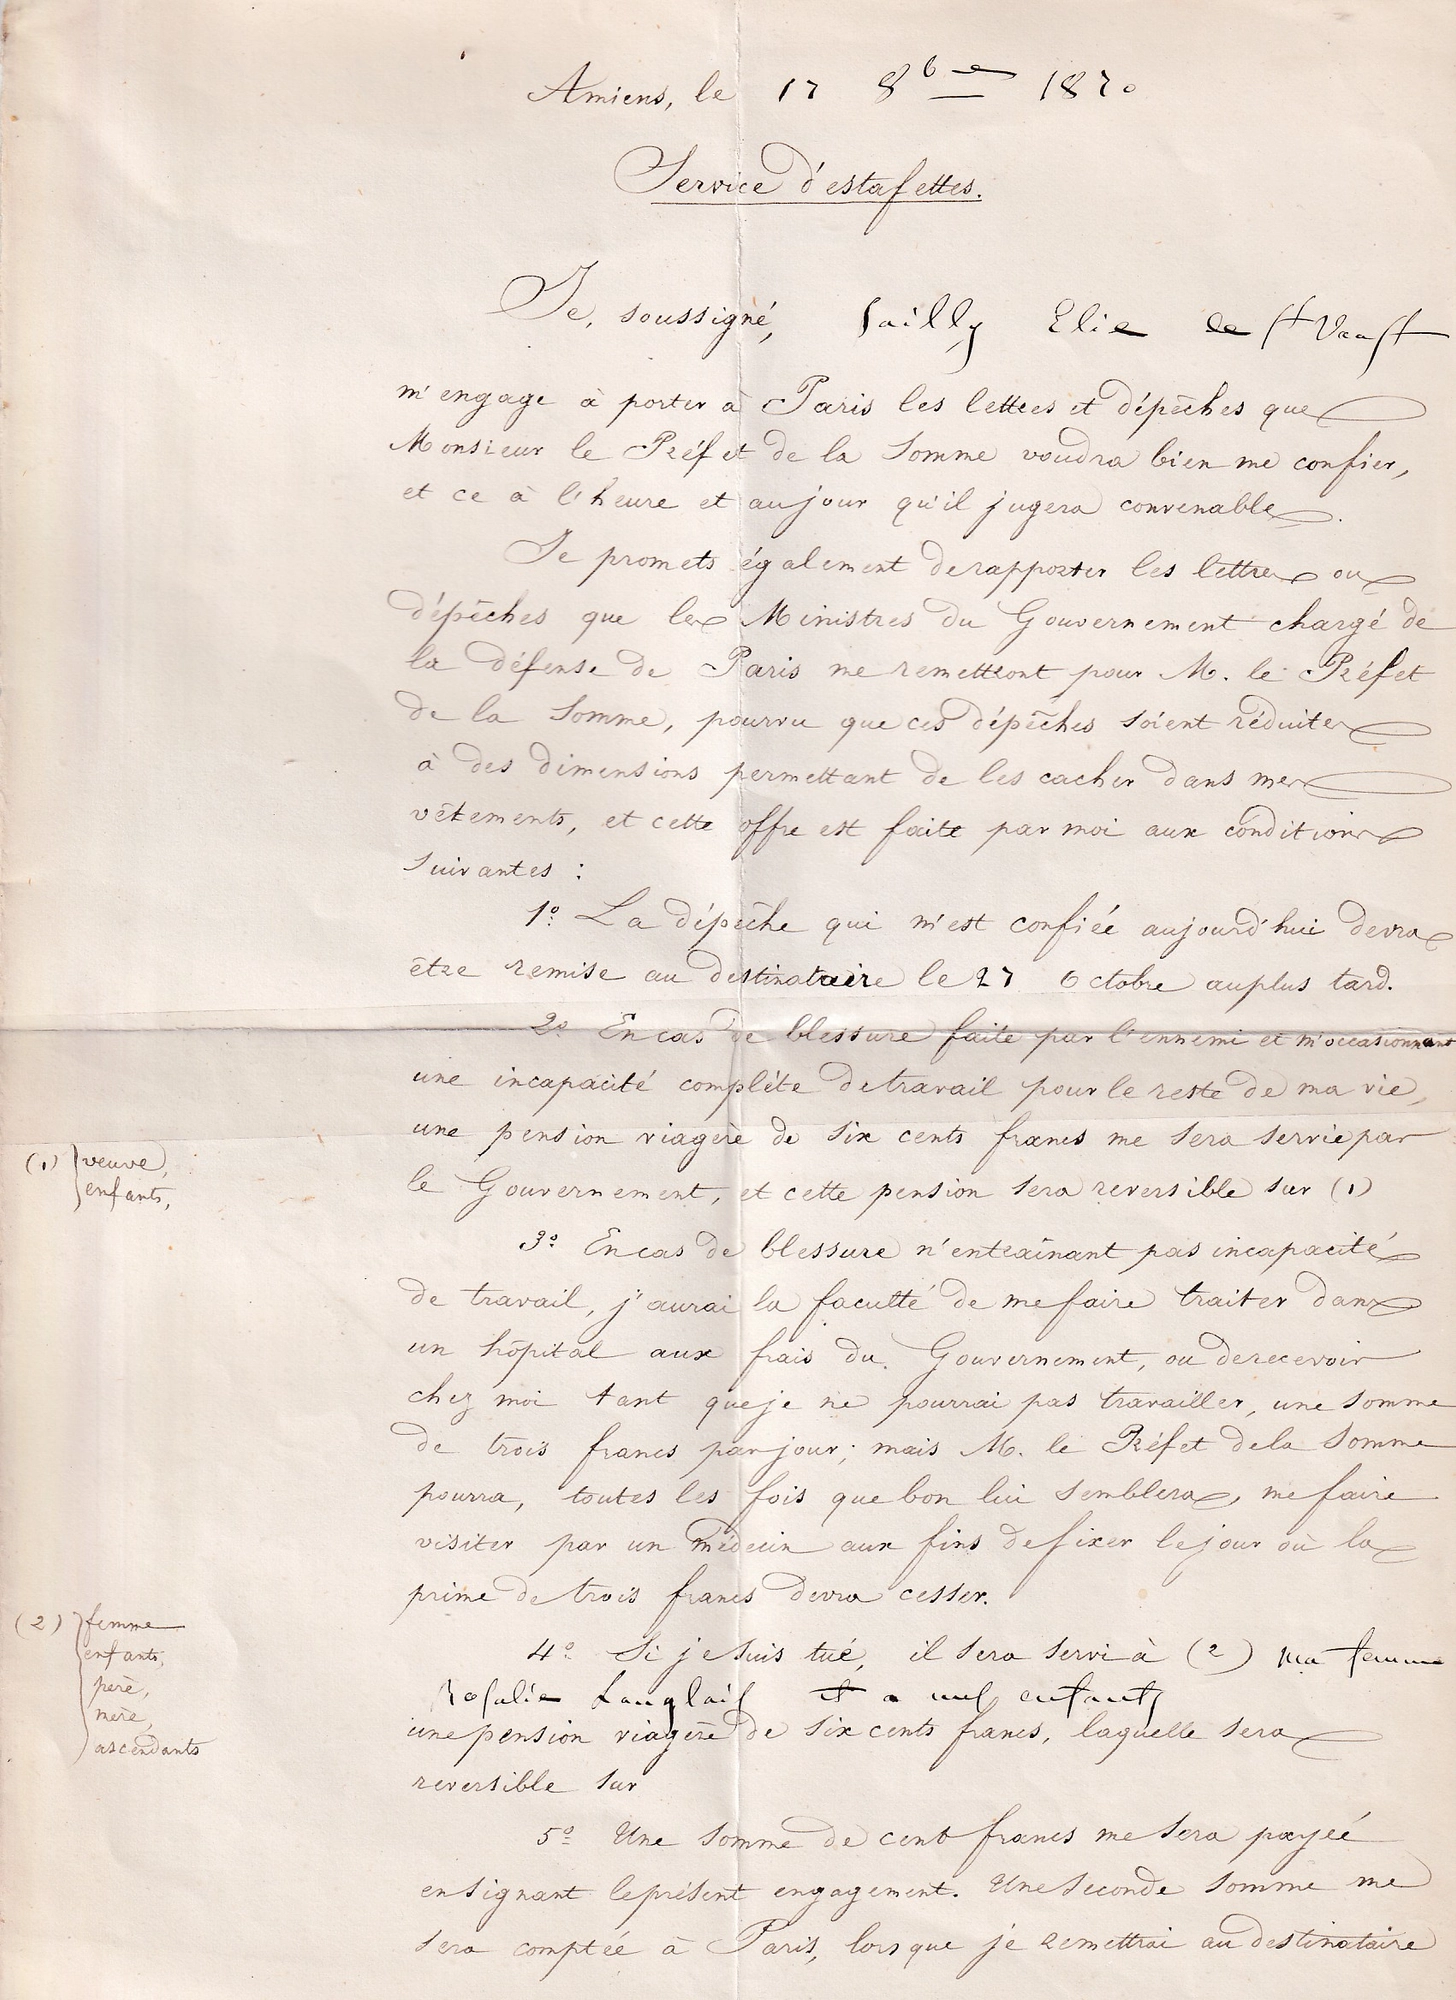 Amiens, le 17 8bre 1870
Service d'estafettes.
Je, soussigné, Sailly Elie de St Vaast
m'engage à porter à Paris les lettres et dépêches que
Monsieur le Préfet de la Somme voudra bien me confier,
et ce à l'heure et au jour qu'il jugera convenable.
Je promets également de rapporter les lettres ou
dépêches que les Ministres du Gouvernement chargé de
la défense de Paris me remettront pour M. le Préfet
de la Somme, pourvu que ces dépêches soient réduites
à des dimensions permettant de les cacher dans mes
vêtements, et cette offre est faite par moi aux conditions
suivantes :
1o. La dépêche qui m'est confiée aujourd'hui devra
être remise au destinataire le 27 Octobre au plus tard.
2o En cas de blessure faite par l'ennemi et m'occasionnant
une incapacité complète de travail pour le reste de ma vie,
une pension viagère de six cents francs me sera servie par
le Gouvernement, et cette pension sera reversible sur (1)
(1) veuve,
enfants,
3o. En cas de blessure n'entraînant pas incapacité
de travail, j'aurai la faculté de me faire traiter dans
un hôpital aux frais du Gouvernement, ou de recevoir
chez moi tant que je ne pourrai pas travailler, une somme
de trois francs par jour; mais M. le Préfet de la Somme
pourra, toutes les fois que bon lui semblera, me faire
visiter par un médecin aux fins de fixer le jour où la
prime de trois francs devra cesser.
4o. Si je suis tué, il sera servi à (2) ma femme
Rosalie Langlais et a mes enfants
une pension viagère de six cents francs, laquelle sera
reversible sur
(2) femme
enfants,
père,
mère,
ascendants
5o Une somme de cent francs me sera payée
en signant le présent engagement. Une seconde somme me
sera comptée à Paris, lorsque je remettrai au destinataire